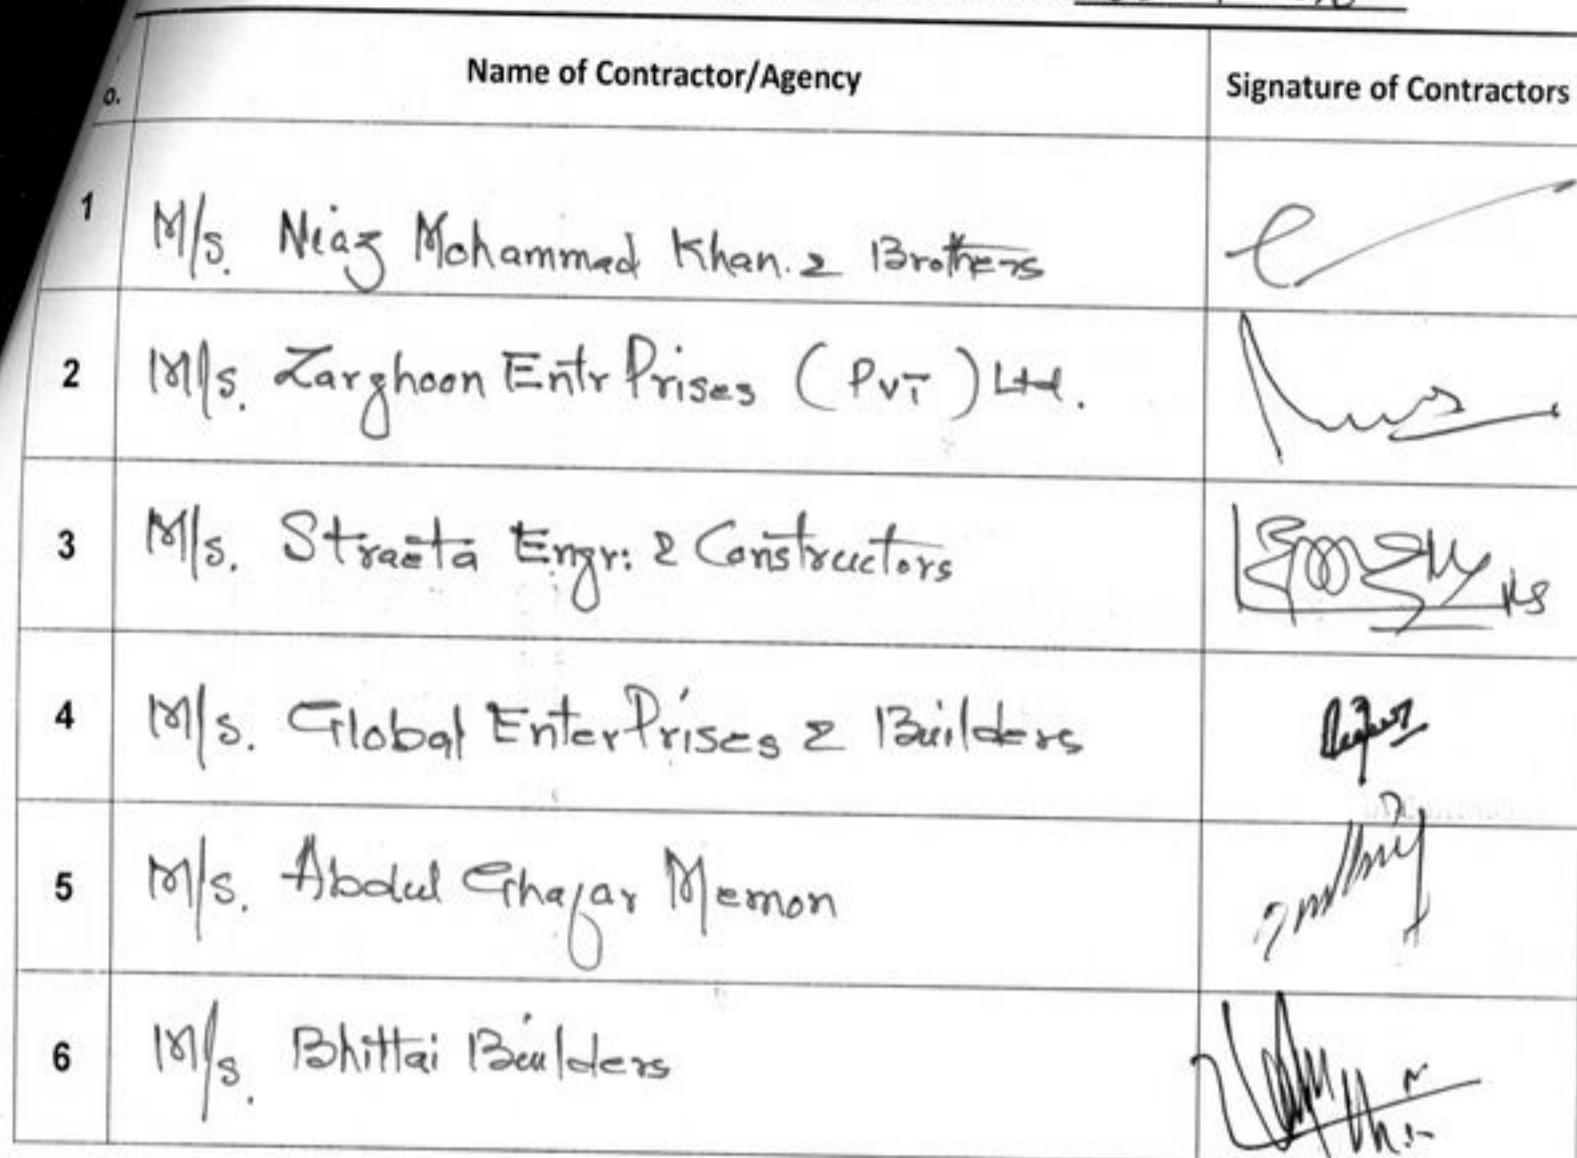 o. Name of Contractor/Agency Signature of Contractors
1 M/s. Niaz Mohammad Khan. & Brothers
2 M/s. Zarghoon Entr Prises (Pvt) Ltd.
3 M/s. Straeta Engr: & Constructors
4 M/s. Global EnterPrises & Builders
5 M/s. Abdul Ghafar Memon
6 M/s. Bhittai Builders